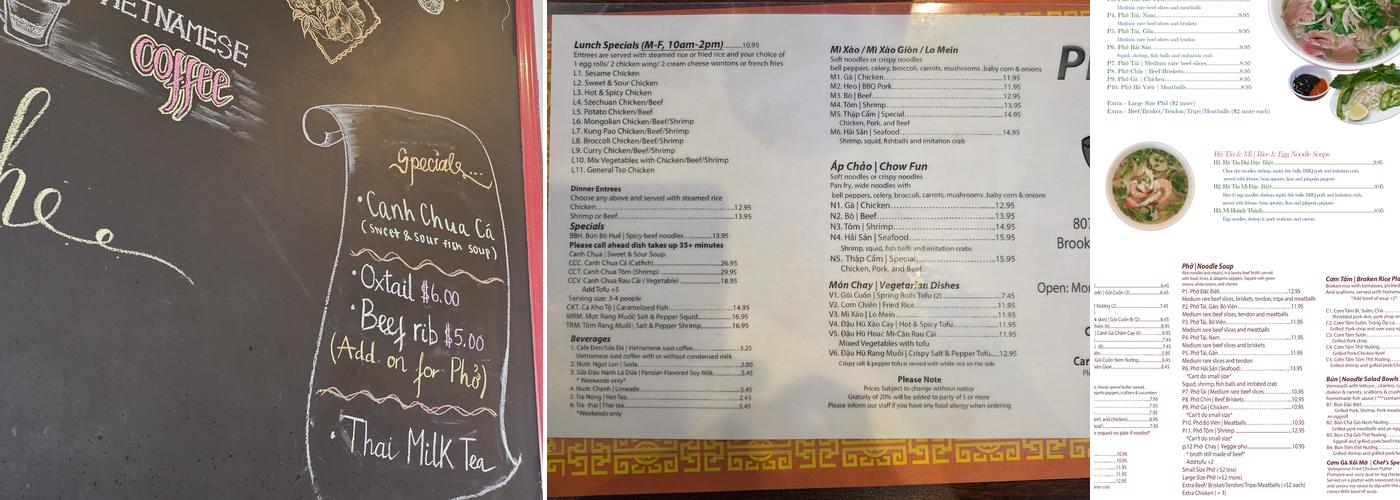 VIETNAMESE
coffee
he
Specials...
• Canh Chua Cá
(sweet & sour fish soup)
• Oxtail $6.00
• Beef rib $5.00
(Add on for Phở)
• Thai Milk Tea
Lunch Specials (M-F, 10am-2pm)..........10.95
Entrees are served with steamed rice or fried rice and your choice of
1 egg rolls/ 2 chicken wing/ 2 cream cheese wontons or french fries
L1. Sesame Chicken
L2. Sweet & Sour Chicken
L3. Hot & Spicy Chicken
L4. Szechuan Chicken/Beef
L5. Potato Chicken/Beef
L6. Mongolian Chicken/Beef/Shrimp
L7. Kung Pao Chicken/Beef/Shrimp
L8. Broccoli Chicken/Beef/Shrimp
L9. Curry Chicken/Beef/Shrimp
L10. Mix Vegetables with Chicken/Beef/Shrimp
L11. General Tso Chicken
Dinner Entrees
Choose any above and served with steamed rice
Chicken..........12.95
Shrimp or Beef..........13.95
Specials
BBH. Bún Bò Huế | Spicy beef noodles..........13.95
Please call ahead dish takes up 35+ minutes
Canh Chua | Sweet & Sour Soup.
CCC. Canh Chua Cá (Catfish)..........26.95
CCT. Canh Chua Tôm (Shrimp)..........29.95
CCV. Canh Chua Rau Cải (Vegetable)..........18.95
Add Tofu +5
Serving size: 3-4 people
CKT. Cá Kho Tộ | Caramelized Fish..........14.95
MRM. Mực Rang Muối| Salt & Pepper Squid..........16.95
TRM. Tôm Rang Muối | Salt & Pepper Shrimp..........16.95
Beverages
1. Cafe Đen/Sữa Đá | Vietnamese iced coffee..........5.25
Vietnamese iced coffee with or without condensed milk
2. Nước Ngọt Lon | Soda..........2.00
3. Sữa Đậu Nành Lá Dứa | Pandan Flavored Soy Milk..........5.45
* Weekends only*
4. Nước Chanh | Limeade..........5.45
5. Trà Nóng | Hot Tea..........2.45
6. Trà thái | Thai tea..........5.45
*Weekends only
Mì Xào / Mì Xào Giòn / Lo Mein
Soft noodles or crispy noodles
bell peppers, celery, broccoli, carrots, mushrooms ,baby corn & onions
M1. Gà | Chicken..........11.95
M2. Heo | BBQ Pork..........11.95
M3. Bò | Beef..........12.95
M4. Tôm | Shrimp..........13.95
M5. Thập Cẩm | Special..........14.95
Chicken, Pork, and Beef
M6. Hải Sản | Seafood..........14.95
Shrimp, squid, fishballs and imitation crab
Áp Chảo | Chow Fun
Soft noodles or crispy noodles
Pan fry, wide noodles with
bell peppers, celery, broccoli, carrots, mushrooms ,baby corn & onions
N1. Gà | Chicken..........12.95
N2. Bò | Beef..........13.95
N3. Tôm | Shrimp..........14.95
N4. Hải Sản | Seafood..........15.95
Shrimp, squid, fish balls and imitation crabs
N5. Thập Cẩm | Special..........15.95
Chicken, Pork, and Beef.
Món Chay | Vegetarian Dishes
V1. Gỏi Cuốn | Spring Rolls Tofu (2)..........7.45
V2. Cơm Chiên | Fried Rice..........11.95
V3. Mì Xào | Lo Mein..........11.95
V4. Đậu Hũ Xào Cay | Hot & Spicy Tofu..........11.95
V5. Đậu Hũ Hoac Mì-Căn Rau Cải..........11.95
Mixed Vegetables with tofu
V6. Đậu Hũ Rang Muối | Crispy Salt & Pepper Tofu..........12.95
Crispy salt & pepper tofu is served with white rice on the side
Please Note
Prices Subject to change without notice
Gratuity of 20% will be added to party of 5 or more
Please inform our staff if you have any food allergy when ordering
807
Brook
Open: Mon
Medium rare beef slices and meatballs
P4. Phở Tái, Nam..........9.95
Medium rare beef slices and briskets
P5. Phở Tái, Gân..........9.95
Medium rare beef slices and tendon
P6. Phở Hải Sản..........9.95
Squid, shrimp, fish balls and imitation crab
P7. Phở Tái | Medium rare beef slices..........8.95
P8. Phở Chín | Beef Briskets..........8.95
P9. Phở Gà | Chicken..........8.95
P10. Phở Bò Viên | Meatballs..........8.95
Extra - Large Size Phở ($2 more)
Extra - Beef/Brisket/Tendon/Tripe/Meatballs ($2 more each)
Hủ Tíu & Mì | Rice & Egg Noodle Soups
H1. Hủ Tíu Dai Đặc Biệt..........9.95
Clear rice noodles, shrimp, squid, fish balls, BBQ pork and imitation crab,
served with lettuce, bean sprouts, lime and jalapeño peppers
H2. Hủ Tíu Mì Đặc Biệt..........9.95
Rice & egg noodles, shrimp, squid, fish balls, BBQ pork and imitation crab,
served with lettuce, bean sprouts, lime and jalapeño peppers
H3. Mì Hoành Thánh..........8.95
Egg noodles, shrimp & pork wontons, and carrots
Phở | Noodle Soup
P1. Phở Đặc Biệt..........12.95
Medium rare beef slices, briskets, tendon, tripe and meatballs
P2. Phở Tái, Gân, Bò Viên..........11.95
Medium rare beef slices, tendon and meatballs
P3. Phở Tái, Bò Viên..........11.95
Medium rare beef slices and meatballs
P4. Phở Tái, Nam..........11.95
Medium rare beef slices and briskets
P5. Phở Tái, Gân..........11.95
Medium rare slices and tendon
P6. Phở Hải Sản (Seafood)..........13.95
*Cant do small size*
Squid, shrimp, fish balls and imitation crab
P7. Phở Tái | Medium rare beef slices..........10.95
P8. Phở Chín | Beef Briskets..........10.95
P9. Phở Gà | Chicken..........10.95
*Can't do small size*
P10. Phở Bò Viên | Meatballs..........10.95
P11. Phở Tôm | Shrimp..........12.95
*Can't do small size*
p.12 Phở Chay | Veggie pho..........10.95
* broth still made of beef*
Add tofu +2
Small Size Phở (-$2 less)
Large Size Phở (+$2 more)
Extra Beef/ Brisket/Tendon/Tripe/Meatballs (+$2 each)
Extra Chicken ( + 3)